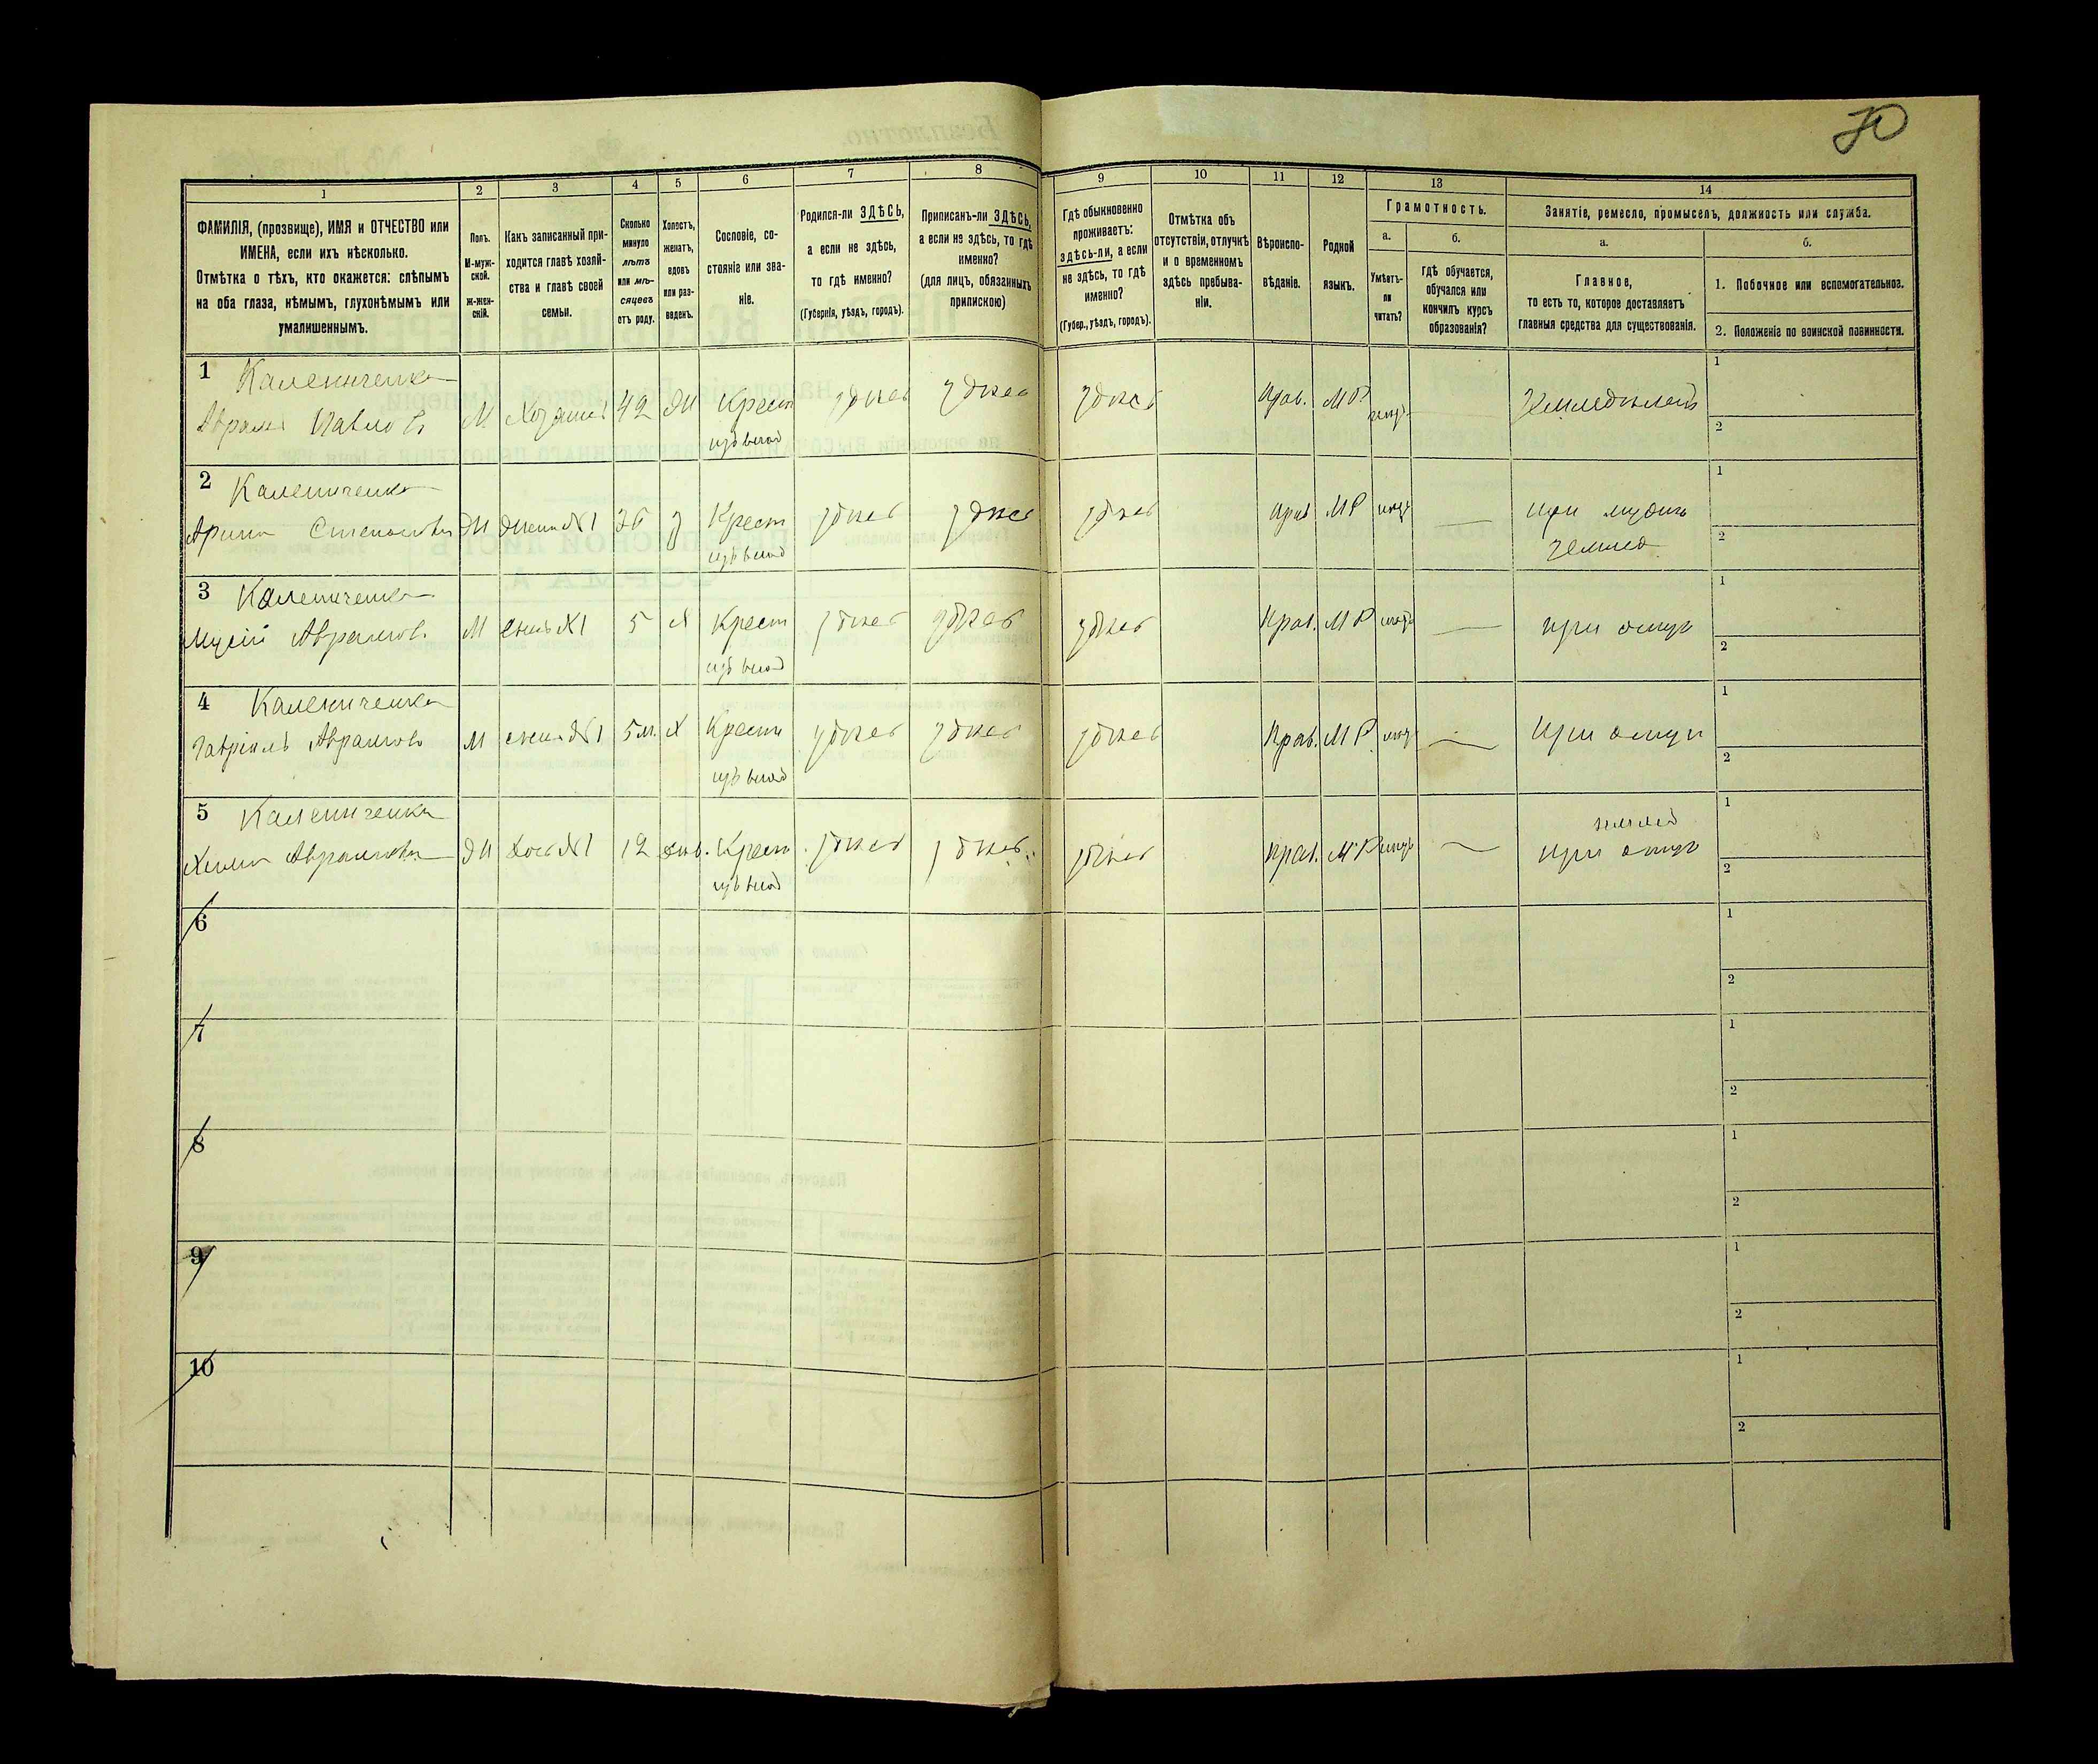 70
1
2
3
4
5
6
7
8
9
10
11
12
13
14
ФАМИЛІЯ, (прозвище), ИМЯ и ОТЧЕСТВО или
ИМЕНА, если ихъ нѣсколько.
Отмѣтка о тѣхъ, кто окажется: слѣпымъ
на оба глаза, нѣмымъ, глухонѣмымъ или
умалишеннымъ.
Полъ.
М-муж-
ской.
ж-жен-
скій.
Какъ записанный при-
ходится главѣ хозяй-
ства и главѣ своей
семьи.
Сколько
минуло
лѣтъ
или мѣ-
сяцевъ
отъ роду.
Холостъ,
женатъ,
вдовъ
или раз-
веденъ.
Сословіе, со-
стояніе или зва-
ніе.
Родился-ли ЗДѢСЬ,
а если не здѣсь,
то гдѣ именно?
(Губернія, уѣздъ, городъ).
Приписанъ-ли ЗДѢСЬ,
а если не здѣсь, то гдѣ
именно?
(для лицъ, обязанныхъ
припискою)
Гдѣ обыкновенно
проживаетъ:
здѣсь-ли, а если
не здѣсь, то гдѣ
именно?
(Губер., уѣздъ, городъ).
Отмѣтка объ
отсутствіи, отлучкѣ
и о временномъ
здѣсь пребыва-
ніи.
Вѣроиспо-
вѣданіе.
Родной
языкъ.
Грамотность.
а.
Умѣетъ-
ли
читать?
б.
гдѣ обучается,
обучался или
кончилъ курсъ
образованія?
Занятіе, ремесло, промыселъ, должность или служба.
а.
Главное,
то есть то, которое доставляетъ
главныя средства для существованія.
б.
1. Побочное или вспомогательное.
2. Положеніе по воинской повинности.
1 Калениченко
Аврамъ Павловъ М Хозяинъ 42 Ж Крест здѣсь здѣсь здѣсь Прав. МР Земледѣлецъ
1
2
2 Калениченко
Арина Степановна Ж жена №1 36 З Крест здѣсь здѣсь здѣсь Прав МР при мужѣ
земле
1
2
3 Калениченко
Мусій Аврамовъ М сынъ №1 5 Х Крест здѣсь здѣсь здѣсь Прав. МР при отцѣ
1
2
4 Калениченко
Гавріилъ Аврамовъ М сынъ №1 5 м. Х Крест здѣсь здѣсь здѣсь Прав. МР при отцѣ
1
2
5 Калениченко
Аврамовна Ж дочь №1 12 дѣв. Крест здѣсь здѣсь здѣсь Прав. МР при отцѣ
1
2
6
1
2
7
1
2
8
1
2
9
1
2
10
1
2